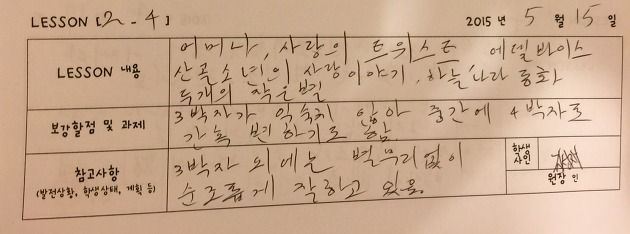 LESSON [2-4] 2015 년 5 월 15 일
LESSON 내용
어머나, 사랑의 트위스트 에델바이스
산골소년의 사랑이야기, 하늘나라 동화
두개의 작은별
보강할점 및 과제
3박자가 익숙치 않아 중간에 4박자로
하기로 함
참고사항
(발전상황, 학생상태, 계획 등)
3박자 외에는 별무리없이
순조롭게 잘하고 있음.
학생
사인
원장 인